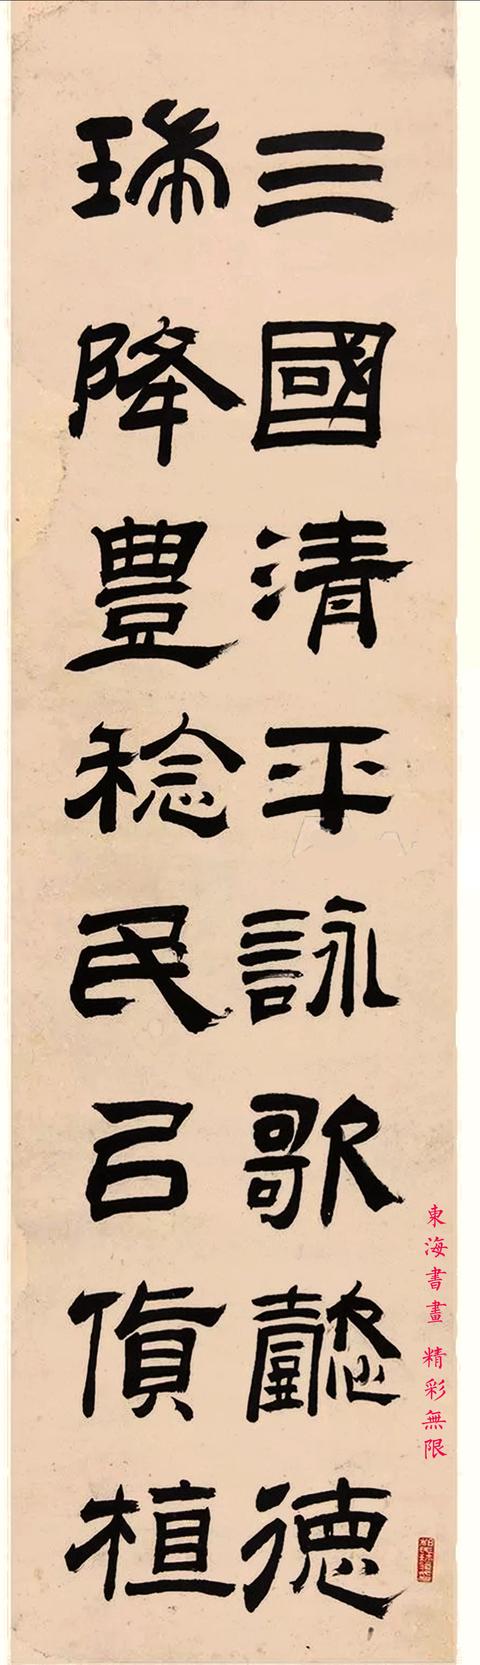 三國清平詠歌懿德
瑞降豊稔民㠯貨植
東海書畫 精彩無限